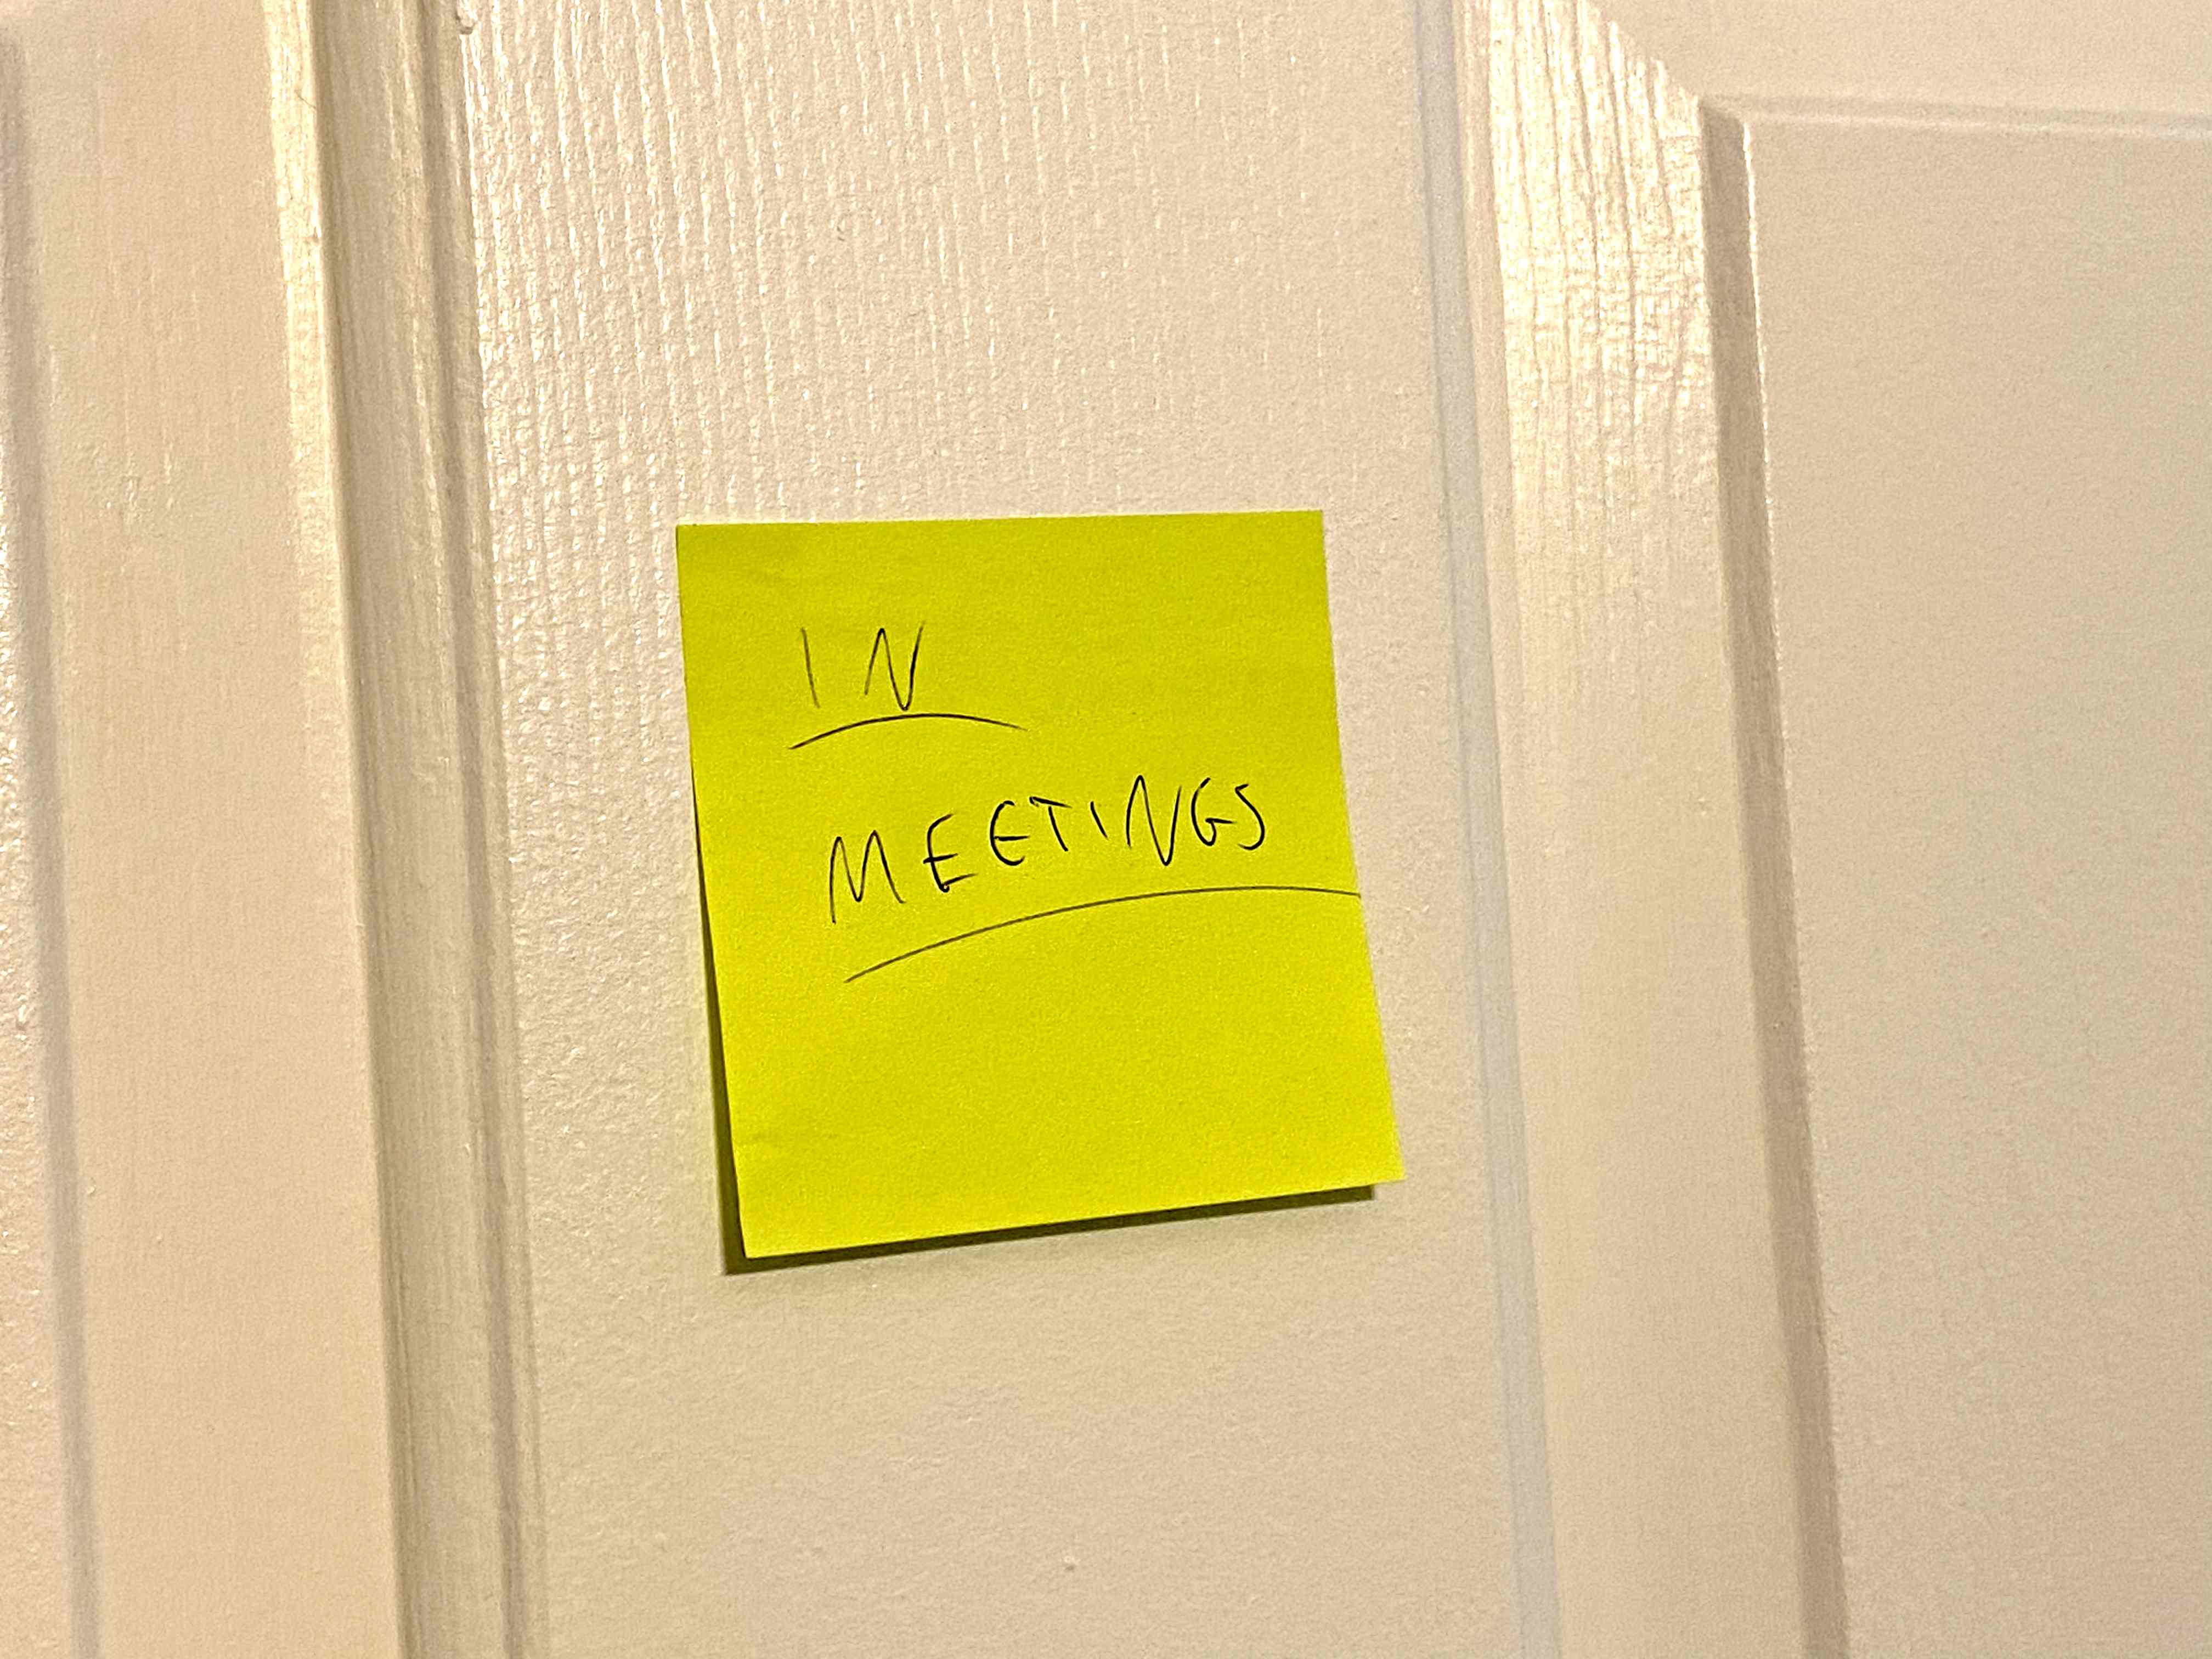 IN
MEETINGS